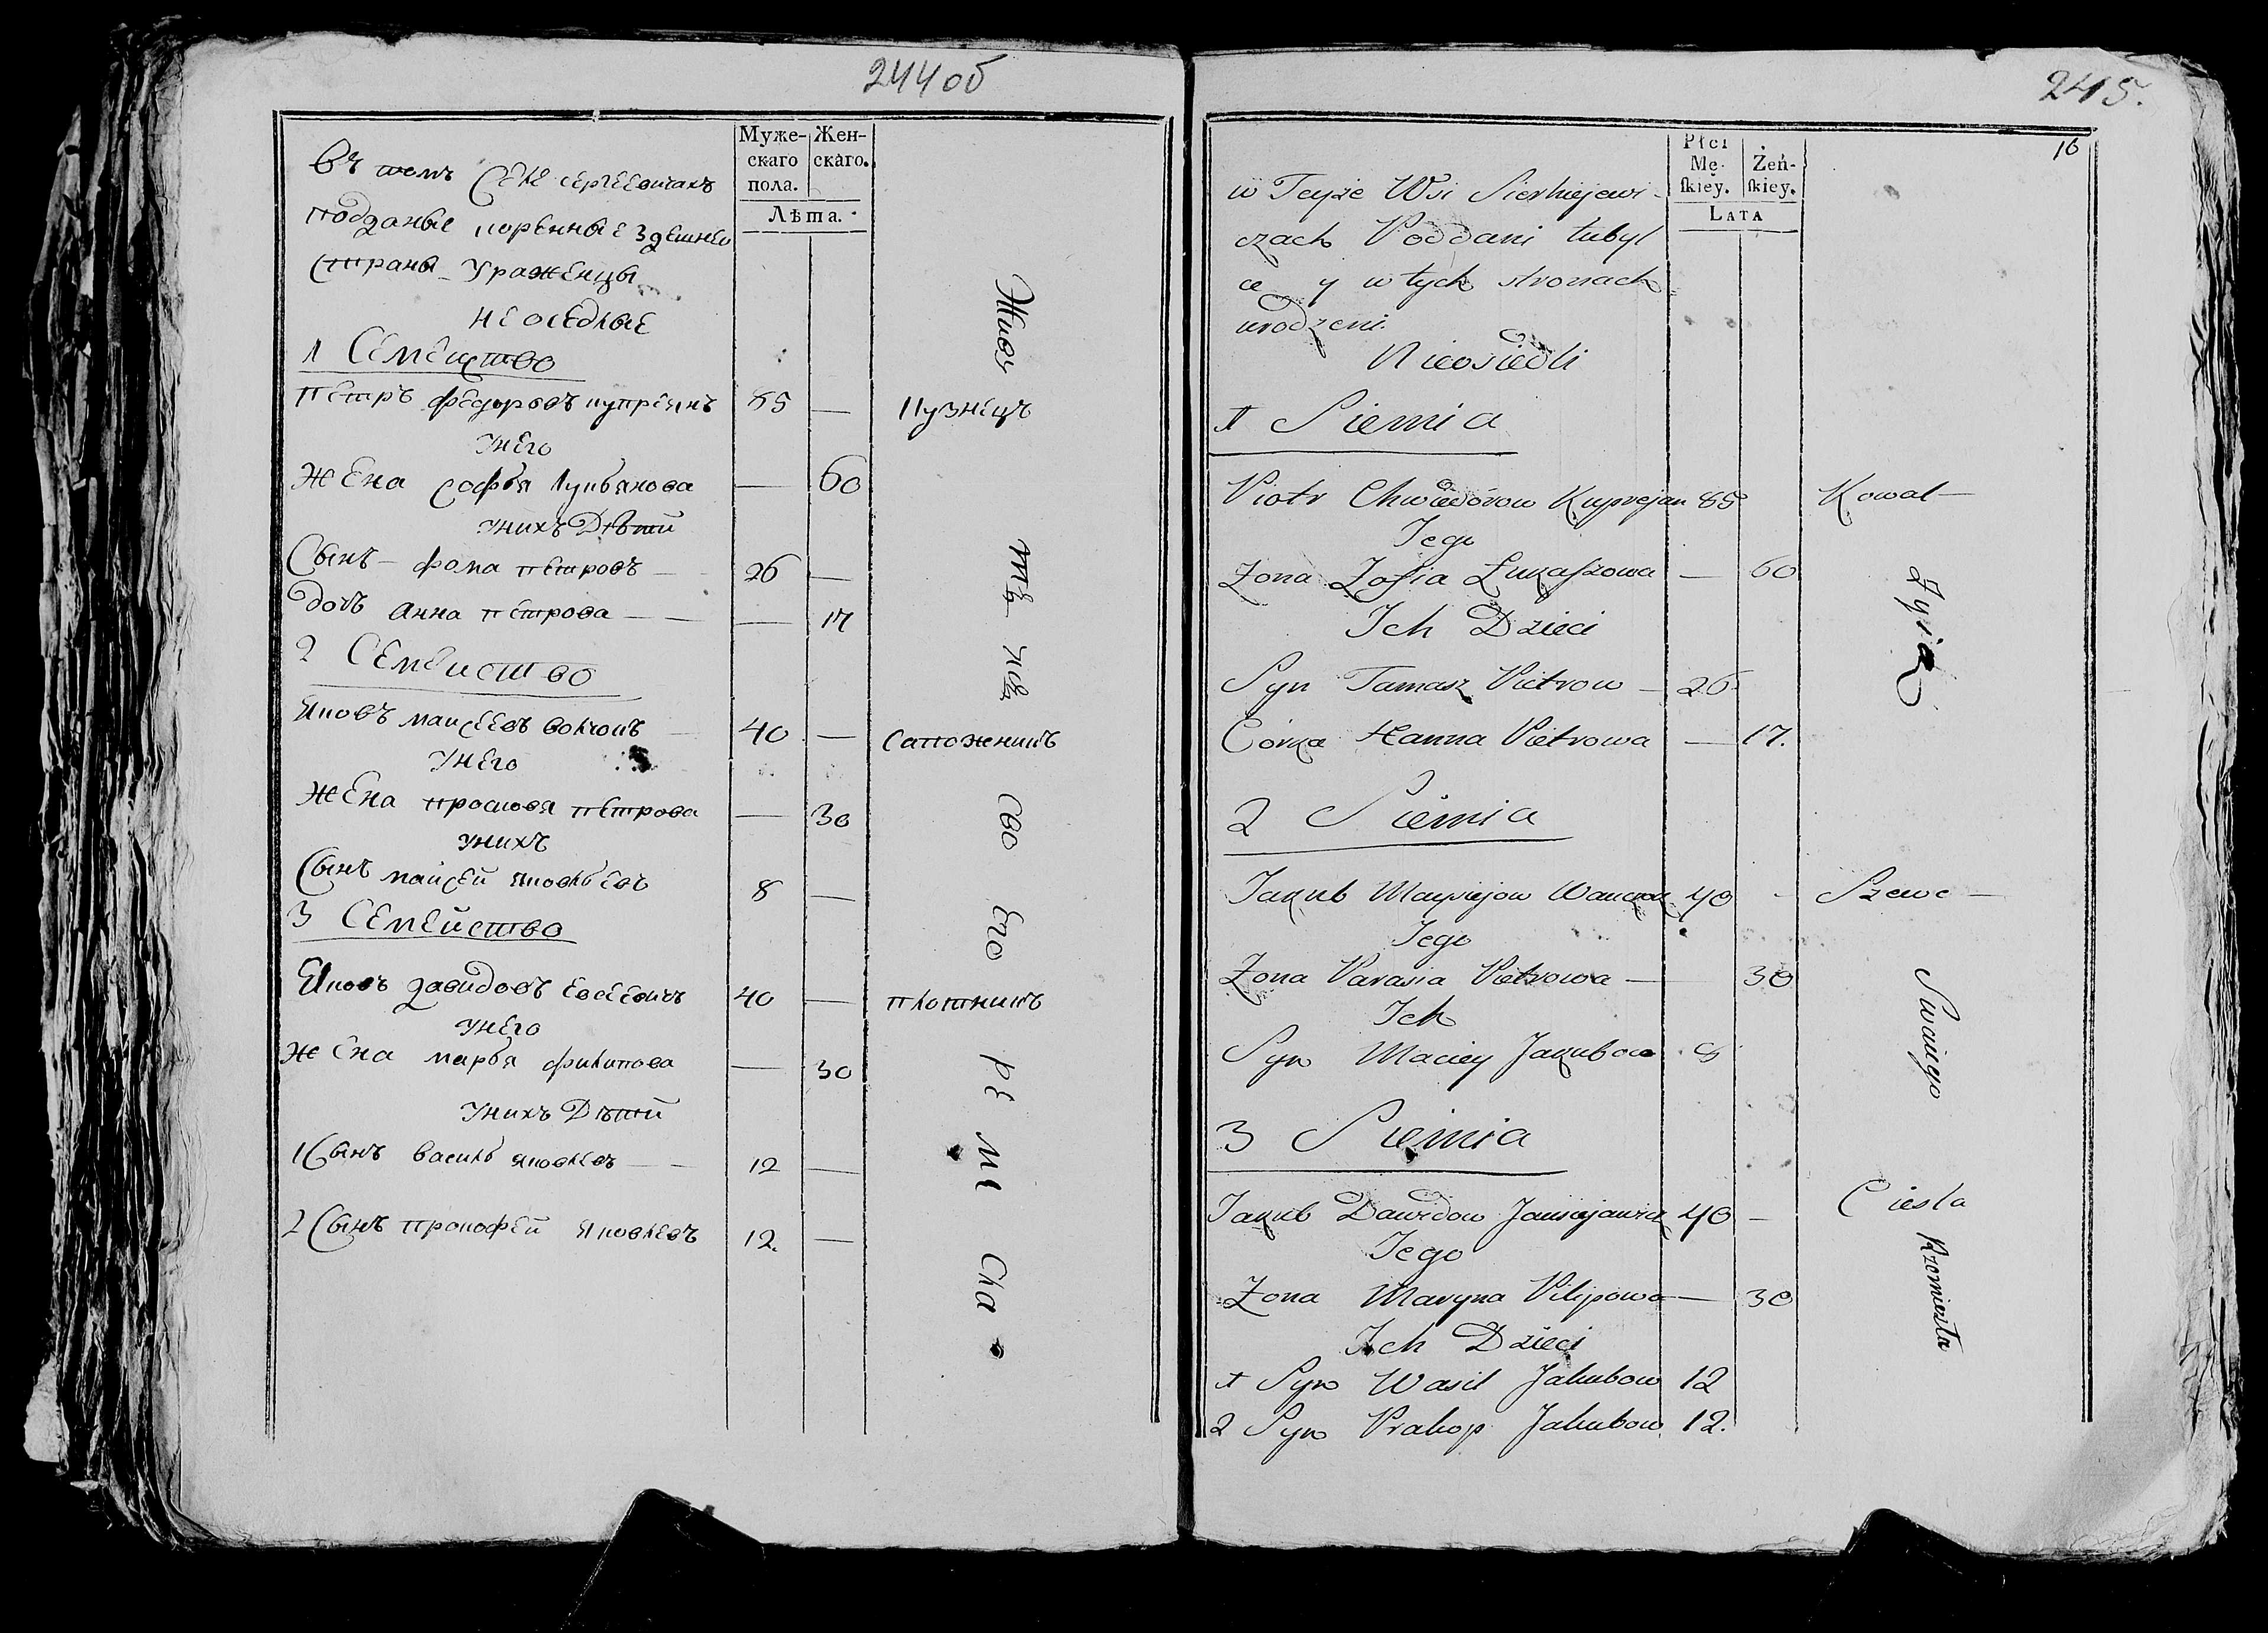 244об
Муже-
скаго
пола.
Жен-
скаго.
Лѣта.
Въ томъ Селе сергеевичахъ
подданые коренные здешнео
страны уроженцы
не оседлые
1 Семейство
петръ федоровъ купреянъ 85 — кузнецъ
у него
жена софья лукьянова — 60
у нихъ Дѣти
Сынъ – фома петровъ — 26 —
дочь анна петрова — — 17
2 Семейство
яковъ маисеевъ волчокъ — 40 — сапожникъ
у него
жена просковя петрова — 30
у нихъ
Сынъ майсей яковлевъ 8 —
3 Семейство
яковъ давидовъ евсеевичъ 40 — плотникъ
у него
жена марья филипова — 30
у нихъ Дѣти
1 Сынъ василь яковлевъ — 12 —
2 Сынъ прокофей яковлевъ 12. —
Живутъ
отъ
свo
его
ре
ме
сла
245.
16
Płci
Mę-
ſkiey.
Żeń-
ſkiey.
LATA
w Teyże Wsi Sierhiejewi-
czach Poddani tubyl
ce y w tych stronach
urodzeni.
Nieosiedli
1 Siemia
Piotr Chwiedorow Kuprejan 85 Kowal —
Jego
Zona Zofia Łukaſzowa — 60
Ich Dzieci
Syn Tamasz Pietrow — 26
Córka Hanna Pietrowa — 17.
2 Siemia
Jakub Maysiejow 40 - Szewc —
Jego
Zona Parasia Pietrowa — 30
Ich
Syn Maciey Jakubow 8
3 Siemia
Jakub Dawidow 40 — Ciesla
Jego
Zona Maryna Pilipowa — 30
Ich Dzieci
1 Syn Wasil Jakubow 12
2 Syn Prakop Jakubow 12.
Żyią z
Swoiego
Rzemiesła